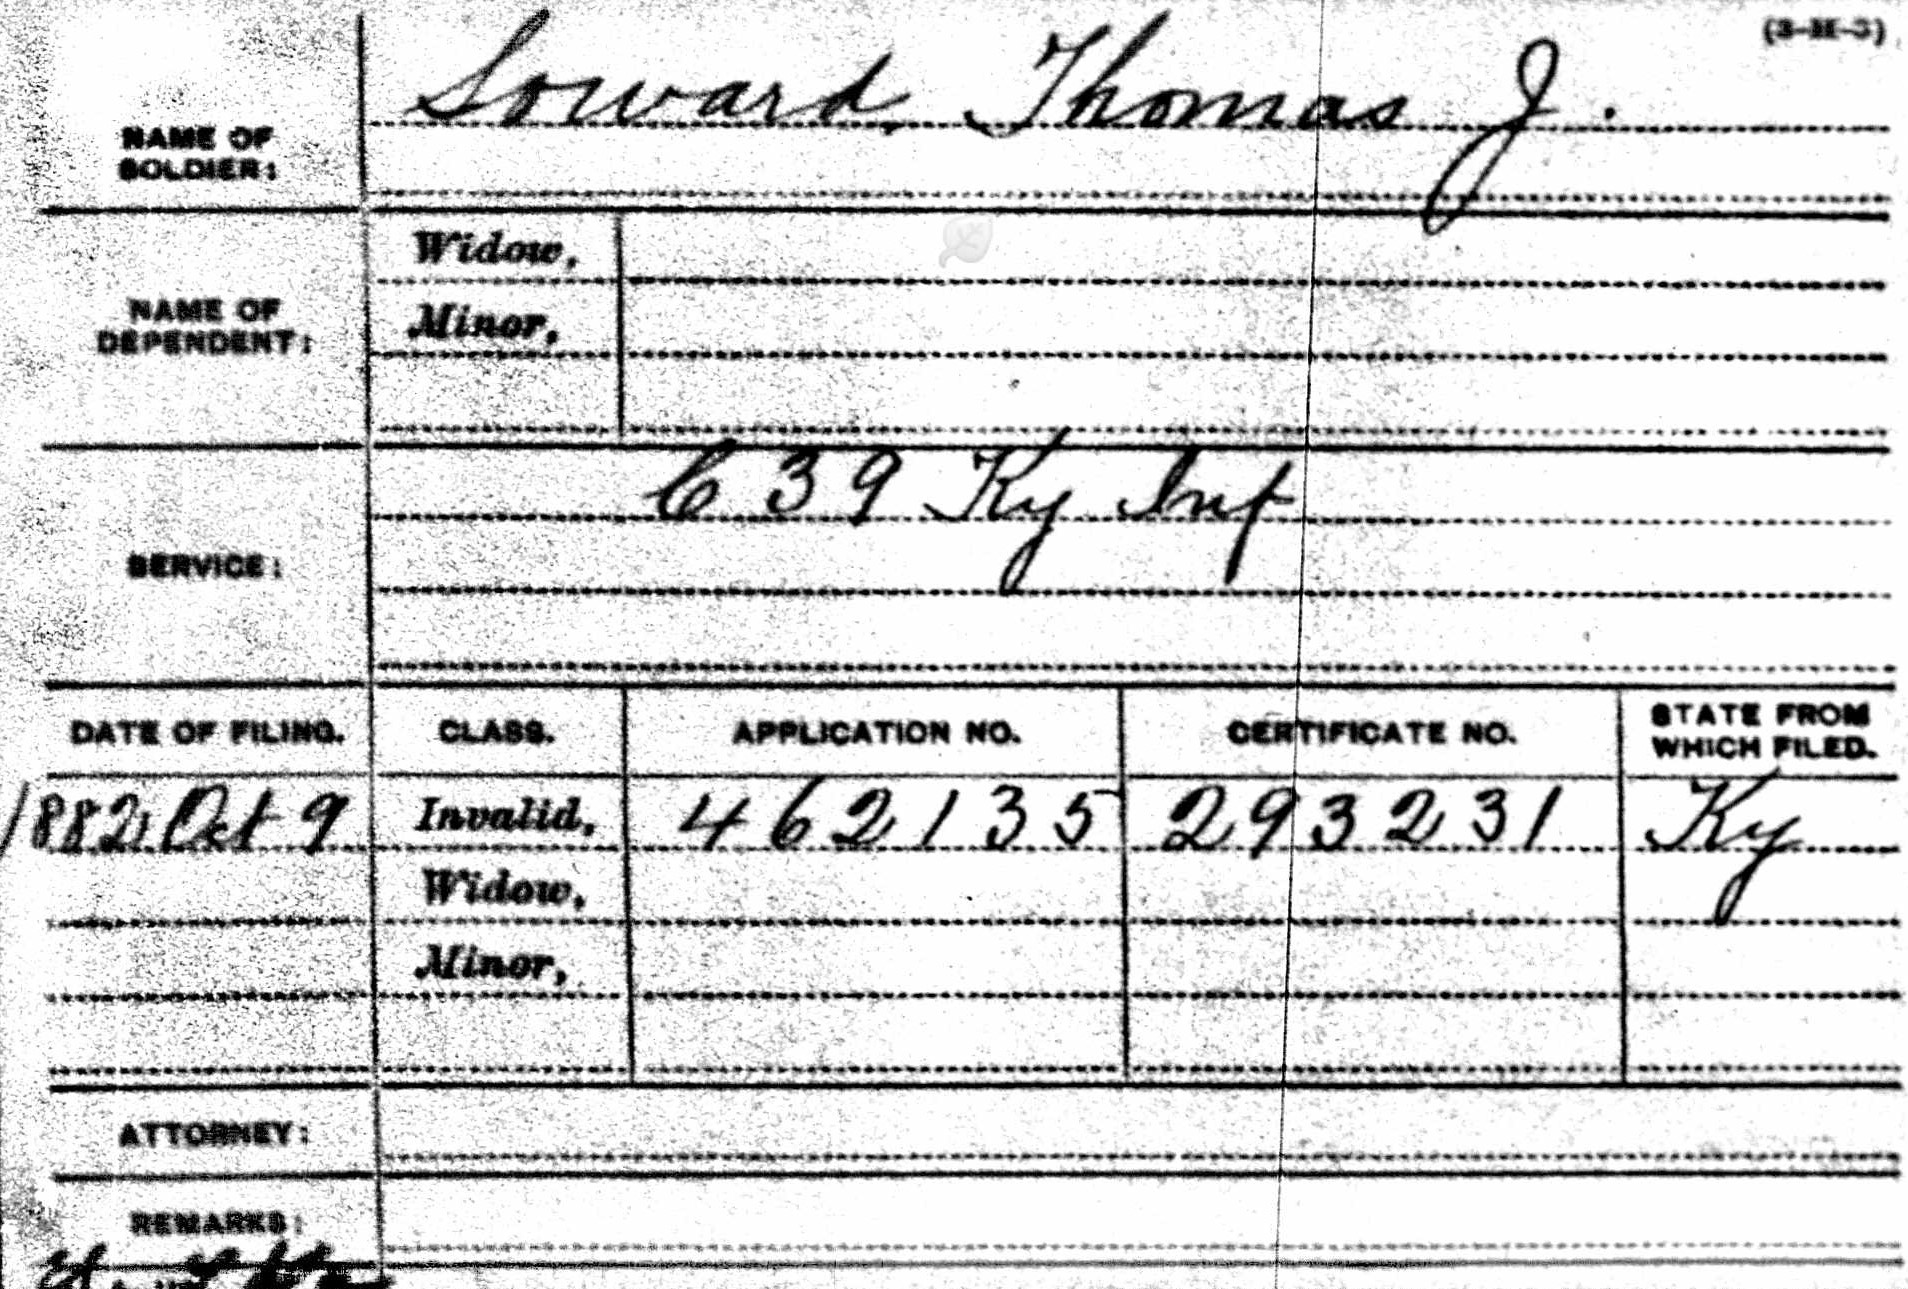 (3-H-3)
Soward, Thomas J.
NAME OF
SOLDIER:
NAME OF
DEPENDENT:
Widow,
Minor,
SERVICE:
C 39 Ky Inf
DATE OF FILING. CLASS. APPLICATION NO. CERTIFICATE NO. STATE FROM WHICH FILED.
1882 Oct 9 Invalid, 462135 293231 Ky
Widow,
Minor,
ATTORNEY:
REMARKS: